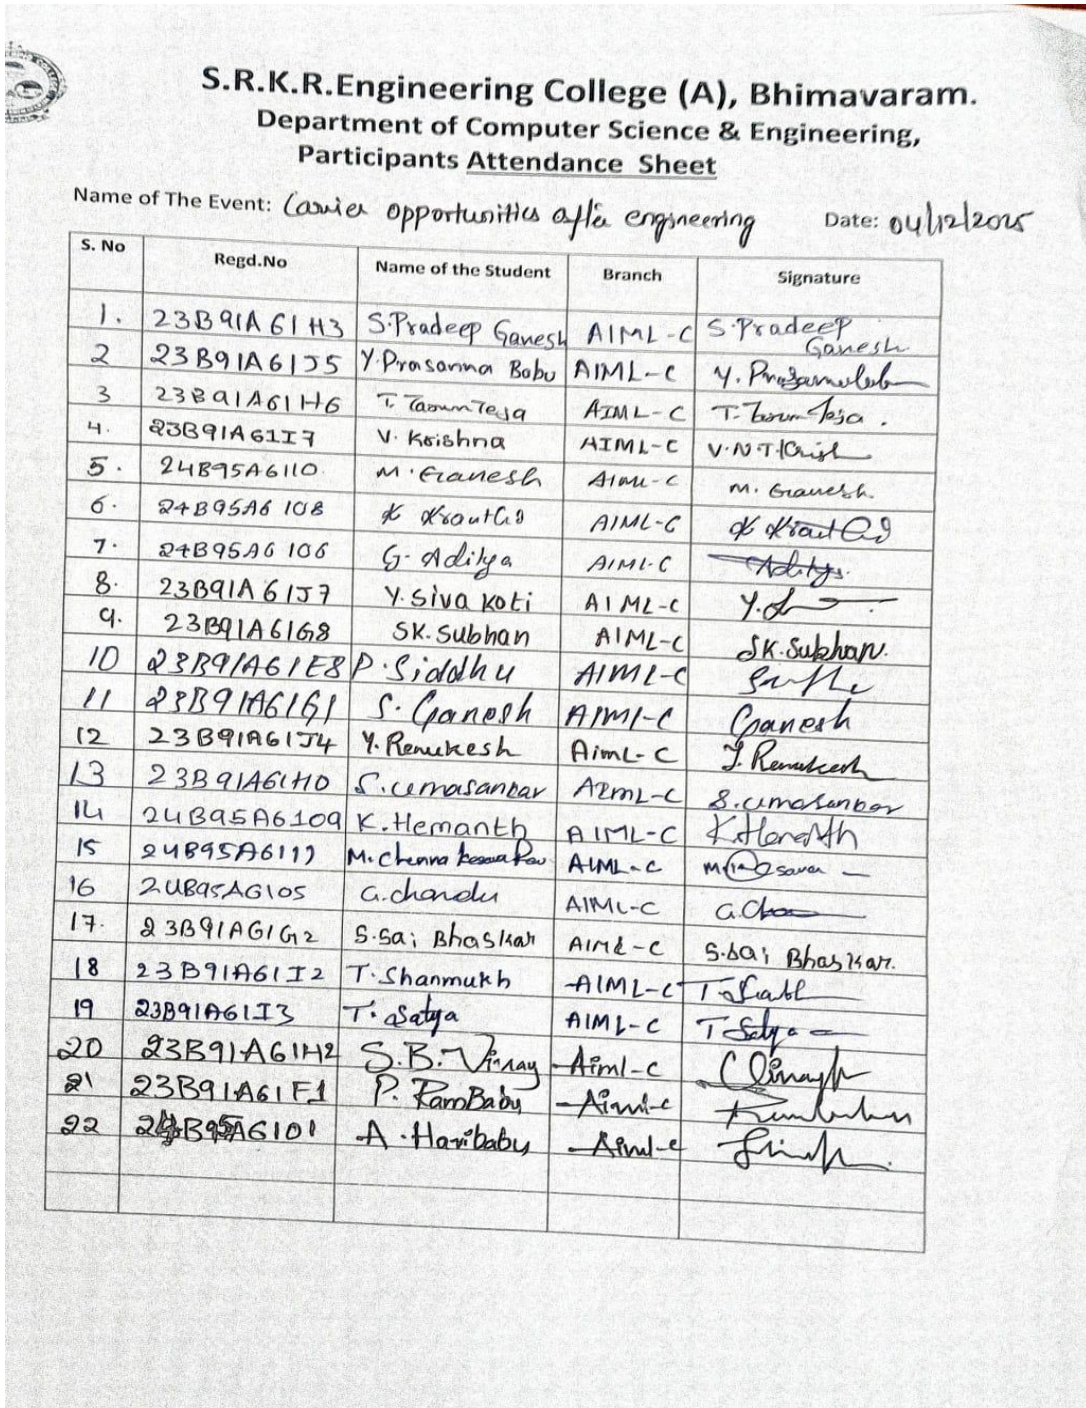 S.R.K.R.Engineering College (A), Bhimavaram.
Department of Computer Science & Engineering,
Participants Attendance Sheet
Name of The Event: Carrier opportunities after engineering Date: 04/12/2025
S. No Regd.No Name of the Student Branch Signature
1. 23B91A61H3 S.Pradeep Ganesh AIML-C S.Pradeep Ganesh
2 23B91A61J5 Y.Prasanna Babu AIML-C Y.
3 23B91A61H6 T. Tarun Teja AIML-C T. Tarun Teja.
4. 23B91A61I7 V. Krishna AIML-C V.N.T.Krish
5. 24B95A6110. M. Ganesh AIML-C M. Ganesh.
6. 24B95A6108 K AIML-C K
7. 24B95A6106 G. Aditya AIML-C Aditya.
8. 23B91A61J7 Y. Siva Koti AIML-C Y.
9. 23B91A61G8 SK. Subhan AIML-C SK. Subhan.
10 23B91A61E8 P. Siddhu AIML-C
11 23B91A61G1 S. Ganesh AIML-C Ganesh
12 23B91A61J4 Y. Renukesh AimL-C Y. Renukesh
13 23B91A61H0 S.Umasankar AIML-C S.Umasankar
14 24B95A6109 K.Hemanth AIML-C K.Hemanth
15 24B95A6111 M. Chenna Kesava Rao AIML-C M
16 24B95A6105 G.chandu AIML-C G.
17. 23B91A61G2 S.Sai Bhaskar AIML-C S.Sai Bhaskar.
18 23B91A61I2 T. Shanmukh AIML-C T.
19 23B91A61I3 T. Satya AIML-C T Satya
20 23B91A61H2 S.B. Vinay Aiml-C
21 23B91A61F1 P. RamBabu Aiml-C
22 24B95A6101 A. Haribabu Aiml-C